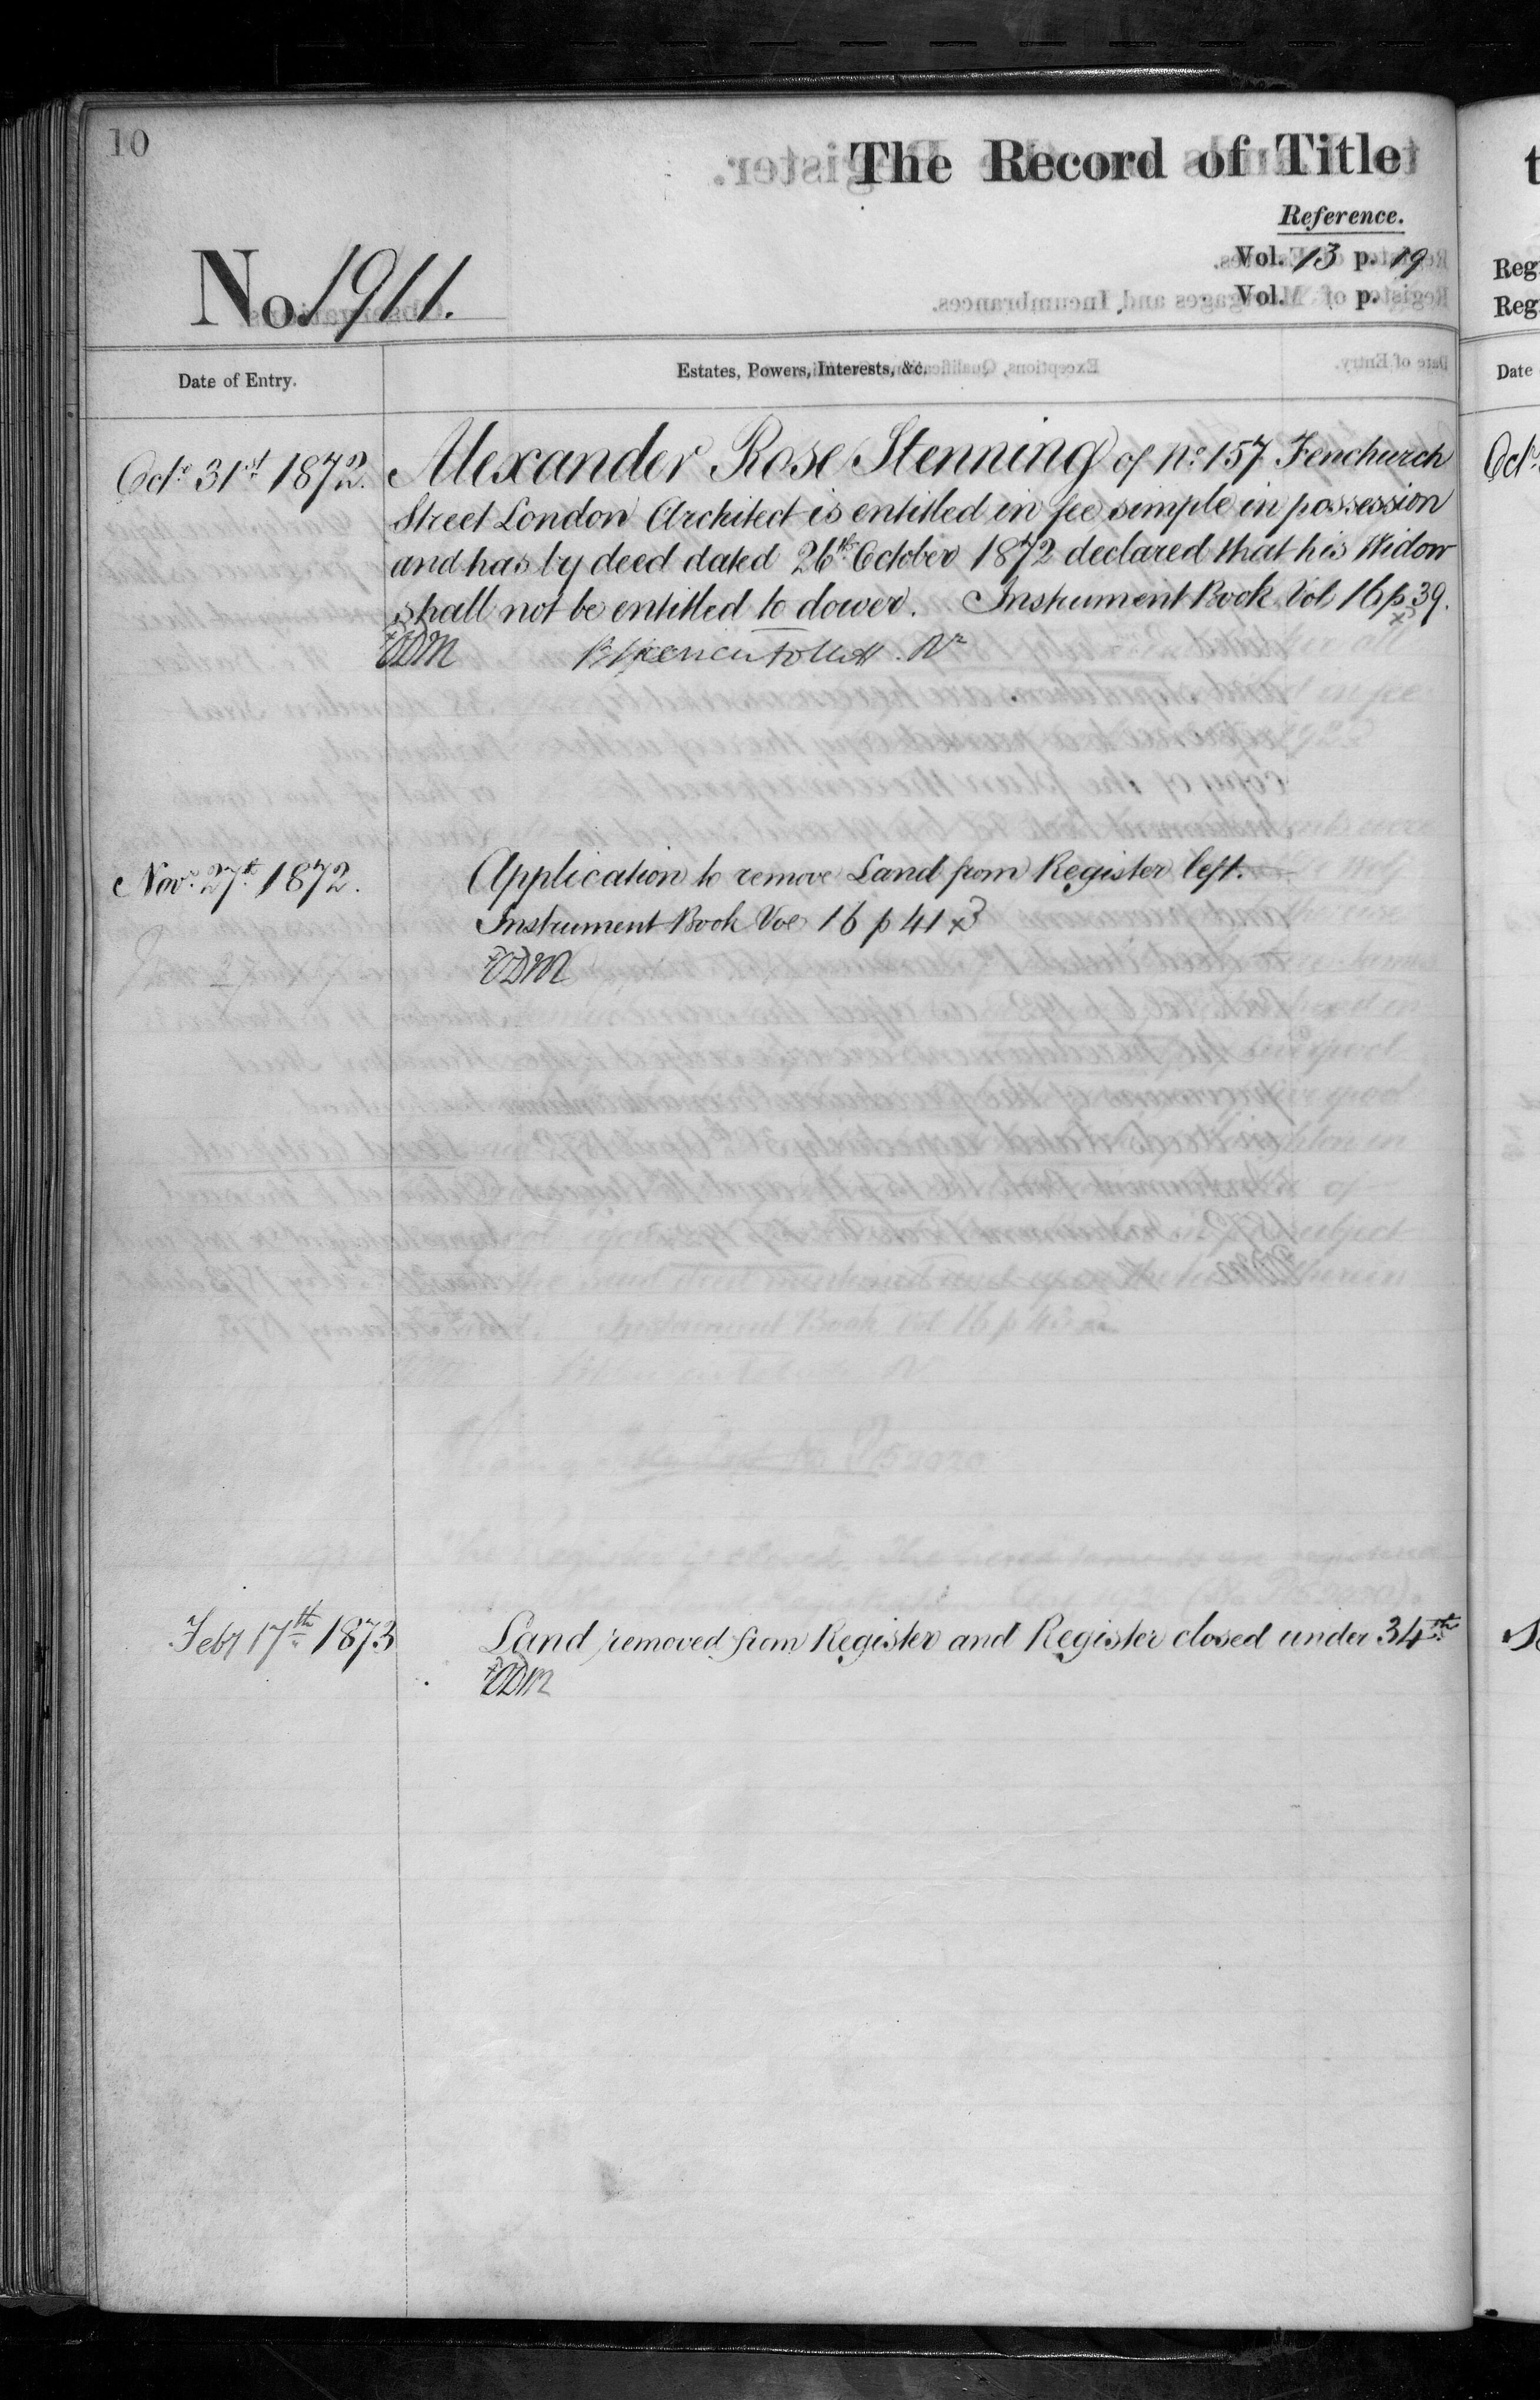 10
The Record of Title
Reference.
Vol. 13 p. 19
Vol. p.
No. 1911.
Date of Entry.
Estates, Powers, Interests, &c.
Octr 31st 1872.
Alexander Rose Stenning of No. 157 Fenchurch
Street London Architect is entitled in fee simple in possession
and has by deed dated 26th October 1872 declared that his Widow
shall not be entitled to dower. Instrument Book Vol 16 p 39.
Novr 27th 1872.
Application to remove Land from Register left.
Instrument Book Vol 16 p 41
Feby 17th 1873
Land removed from Register and Register closed under 34th
t
Reg
Reg
Date
Oct